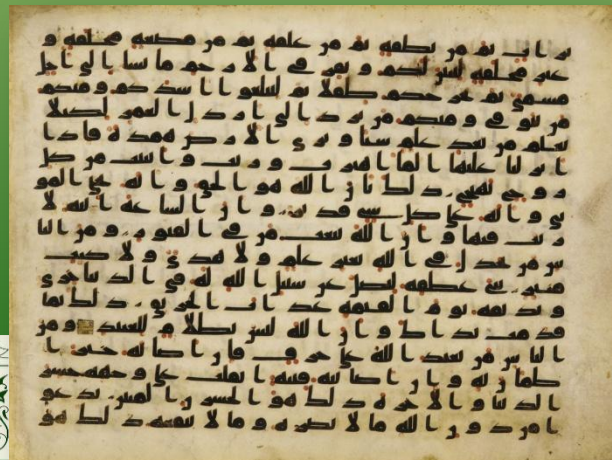 تراب ثم من نطفة ثم من علقة ثم من مضغة مخلقة و
غير مخلقة لنبين لكم و نقر في الارحم ما نشا الى اجل
مسمى ثم نخرجكم طفلا ثم لتبلغوا اشدكم و منكم
من يتوفى و منكم من يرد الى ارذل العمر لكيلا
يعلم من بعد علم شيا و ترى الارض همدة فاذا
انزلنا عليها الما اهتزت و ربت و انبتت من كل
زوج بهيج ذلك بان الله هو الحق و انه يحي المو
تى و انه على كل شي قدير و ان الساعة اتية لا
ريب فيها و ان الله يبعث من في القبور و من النا
س من يجدل في الله بغير علم و لا هدى و لا كتب
منير ثني عطفه ليضل عن سبيل الله له في الدنيا خزي
و نذيقه يوم القيمة عذاب الحريق ذلك بما
قدمت يداك و ان الله ليس بظلام للعبيد و من
الناس من يعبد الله على حرف فان اصابه خير ا
طمان به و ان اصابته فتنة انقلب على وجهه خسر
الدنيا و الاخرة ذلك هو الخسرن المبين يدعو
ا من دون الله ما لا يضره و ما لا ينفعه ذلك هو